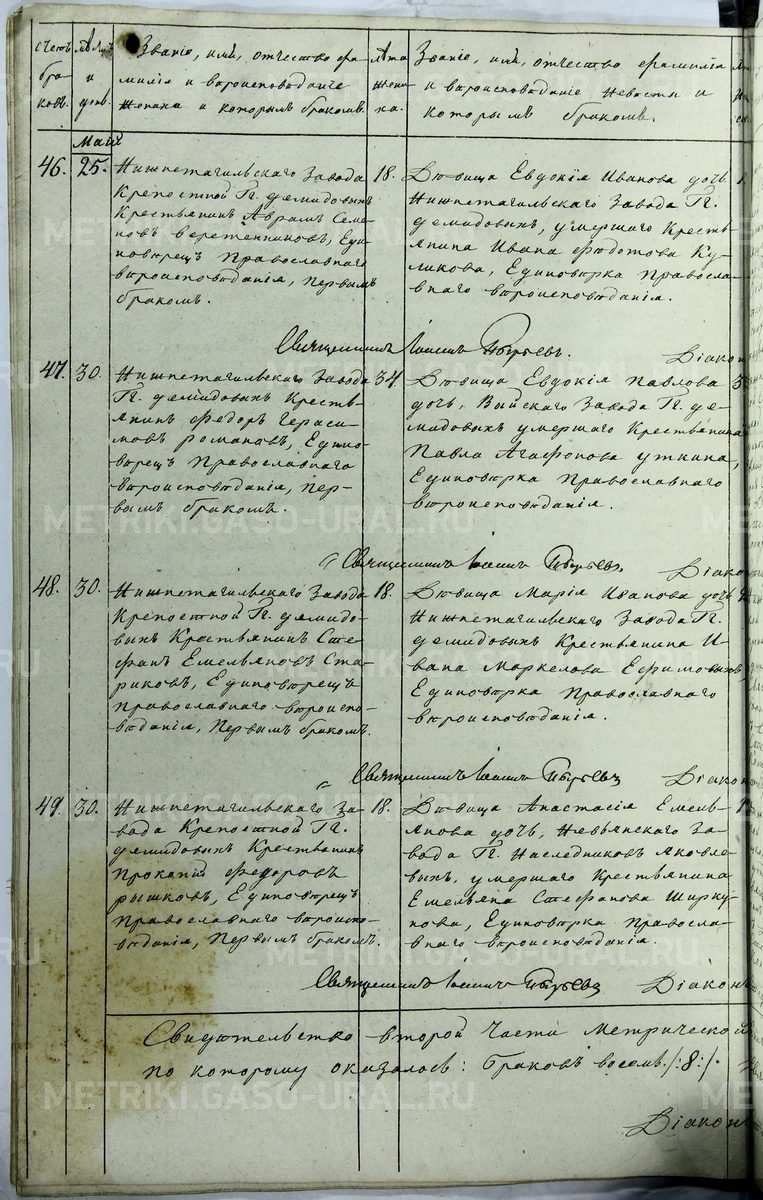 счетъ
бра
ковъ.
и
днѣ.
Званіе, имя, отчество фа
милія и вѣроисповѣданіе
жениха и которымъ бракомъ.
Лѣта
жени
ха.
Званіе, имя, отчество фамилія
и вѣроисповѣданіе невѣсты и
которымъ бракомъ.
Маій
46. 25.
Нижнетагильскаго Завода
Крепостной Гг. Демидовыхъ
Крестьянинъ Аврамъ Семе-
новъ Веретенниковъ, Еди-
новѣрецъ Православнаго
вѣроисповѣданія, первымъ
бракомъ.
18.
Дѣвица Евдокія Иванова дочь
Нижнетагильскаго Завода Гг.
Демидовыхъ, умершаго Кресть-
янина Ивана Федотова Ку-
ликова, Единовѣрка Правосла-
внаго вѣроисповѣданія.
Священникъ Іоаннъ Пырьевъ.
Діакон
47. 30.
Нижнетагильскаго Завода
Гг. Демидовыхъ Кресть-
янинъ Федоръ Гераси-
мовъ Романовъ, Едино-
вѣрецъ Православнаго
вѣроисповѣданія, пер-
вымъ бракомъ.
34
Дѣвица Евдокія Павлова
дочь, Выйскаго Завода Гг. Де-
мидовыхъ умершаго Крестьянина
Павла Агафонова Уткина,
Единовѣрка Православнаго
вѣроисповѣданія.
Священникъ Іоаннъ Пырьевъ
Діакон
48. 30.
Нижнетагильскаго Завода
Крепостной Гг. Демидо-
выхъ Крестьянинъ Сте-
фанъ Емельяновъ Ста-
риковъ, Единовѣрецъ
Православнаго вѣроиспо-
вѣданія, Первымъ бракомъ.
18.
Дѣвица Марія Иванова дочь
Нижнетагильскаго Завода Гг.
Демидовыхъ Крестьянина И-
вана Маркелова Ефимовыхъ,
Единовѣрка Православнаго
вѣроисповѣданія.
Священникъ Іоаннъ Пырьевъ
Діакон
49. 30.
Нижнетагильскаго За-
вода Крепостной Гг.
Демидовыхъ Крестьянинъ
Прокопій Федоровъ
Рышковъ, Единовѣрецъ
Православнаго вѣроиспо-
вѣданія, Первымъ бракомъ.
18.
Дѣвица Анастасія Емель-
янова дочь, Невьянскаго За-
вода Гг. Наследниковъ Яковле-
выхъ, умершаго Крестьянина
Емельяна Стефанова Ширку-
нова, Единовѣрка Правосла-
внаго вѣроисповѣданія.
Священникъ Іоаннъ Пырьевъ
Діаконъ
Свидѣтельство второй части Метрической
по которому оказалось: Браковъ восемь /:8:/.
Діаконъ
METRIKI.GASO-URAL.RU